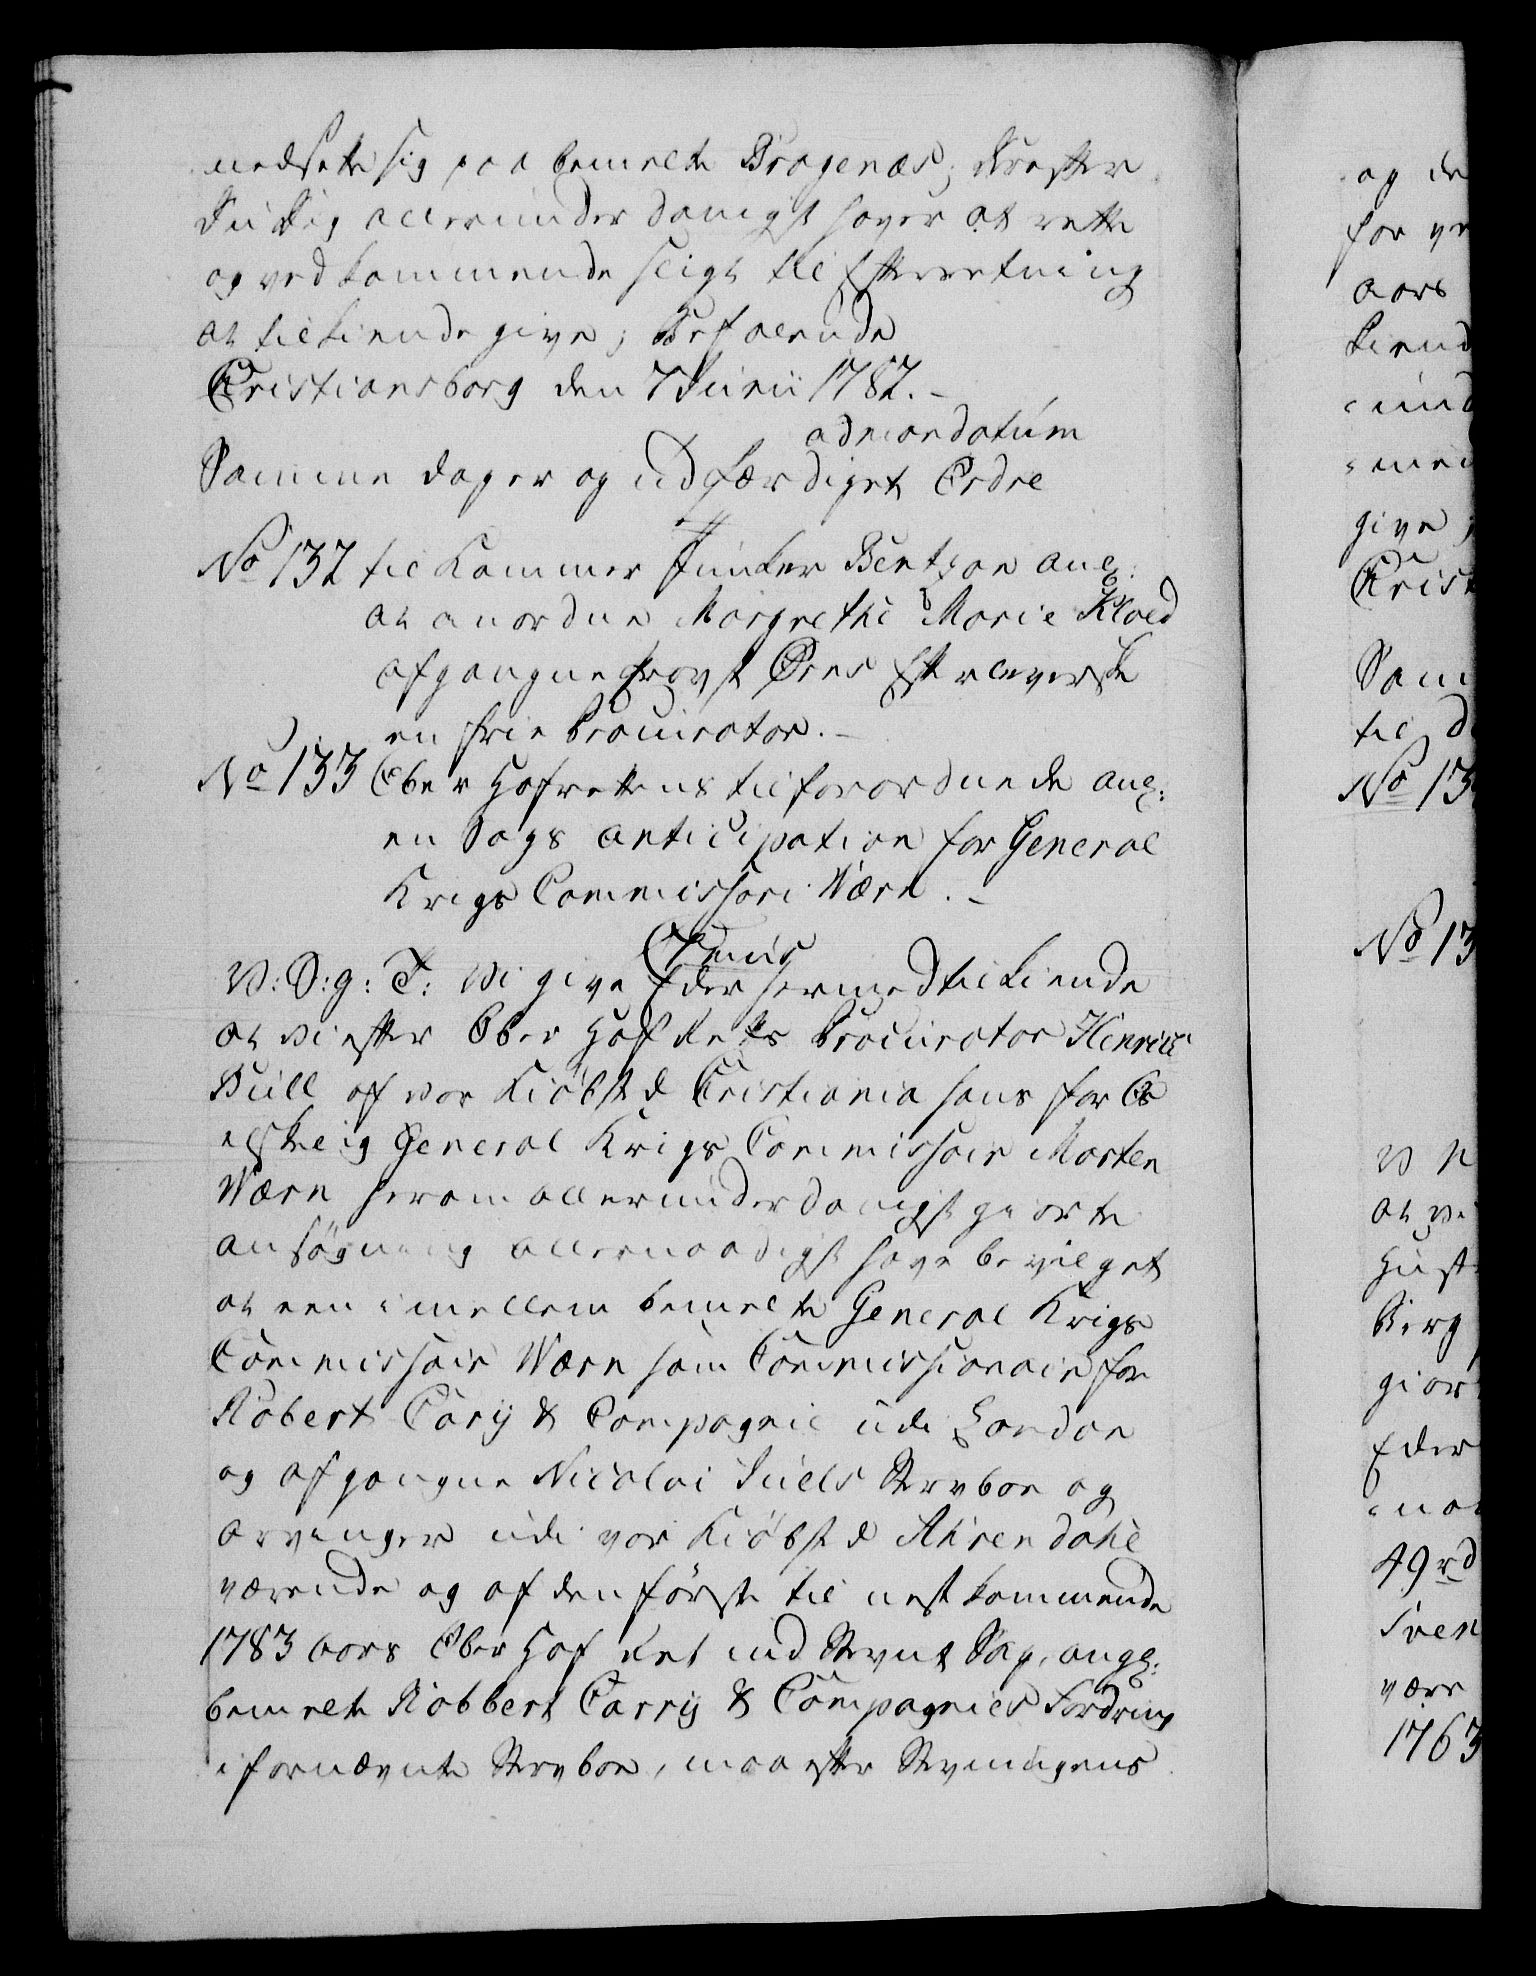 nedsette sig paa bemelte Bragenæs; Hvorefter
Du Dig allerunderdanigst haver at rette
og vedkommende sligt til Efterretning
at tilkiende give; Befalende
Cristiansborg den 7 Junii 1782. -
ad mandatum
Samme dager og udfærdiget Ordre
No 132 til Kammer Junker Bentzon ang:
at anordne Margrethe Marie Kloed
afgangne Provst Ørns Efterleverske
en frie Procurator. -
No 133 Ober Hofrettens tilforordnede ang:
en Sags anticipation for General
Krigs Commissari Wærn. -
V: S: g: T: Vi give Eder hermed tilkiende
at vi efter Ober Hof Rets Procurator Henrich
Bull af vor Kiöbsted Cristiania hans for Os
elskelig General Krigs Commissair Morten
Wærn herom allerunderdanigst giorte
ansögning allernaadigst have bevilget
at een imellem bemelte General Krigs
Commissair Wærn som Commissionair for
Robert Cary & Compagnie udi London
og afgangne Nicolai Juels Stervboe og
arvinger udi vor Kiöbsted Ahrendahl
værende og af den förste til nestkommende
1783 aars Ober Hof Ret indstevnt Sag, angl:
bemelte Robbert Carry & Compagnies Fordring
i fornævnte Stervboe, maa efter Stevningens
og de
for ve
aars
kiend
give
Crist
Sam
til d
No 13
No 13
at vi
Hust
Berg
giort
Eder
49rd
Sven
være
1763